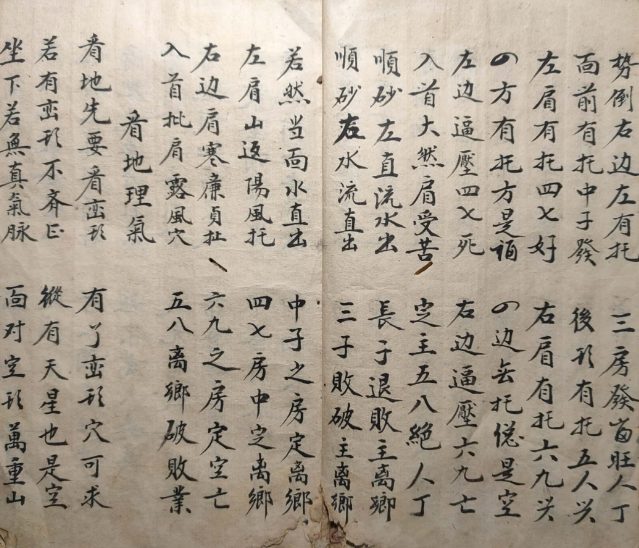 势倒右边左有托 三房發畐旺人丁
面前有托中子發 後形有托五人兴
左肩有托四七好 右肩有托六九兴
四方有托方是福 四边無托总是空
左边逼壓四七死 右边逼壓六九亡
入首大然肩受苦 定主五八絶人丁
順砂左直流水出 長子退敗主离鄉
順砂右水流直出 三子敗破主离鄉
若然当面水直出 中子之房定离鄉
左肩山返陽風托 四七房中定离鄉
右边肩寒廉貞扯 六九之房定空亡
入首批肩露風穴 五八离鄉破敗業
看地理氣
看地先要看峦形 有了峦形穴可求
若有峦形不齐正 縱有天星也是空
坐下若無真氣脉 面对空形萬重山